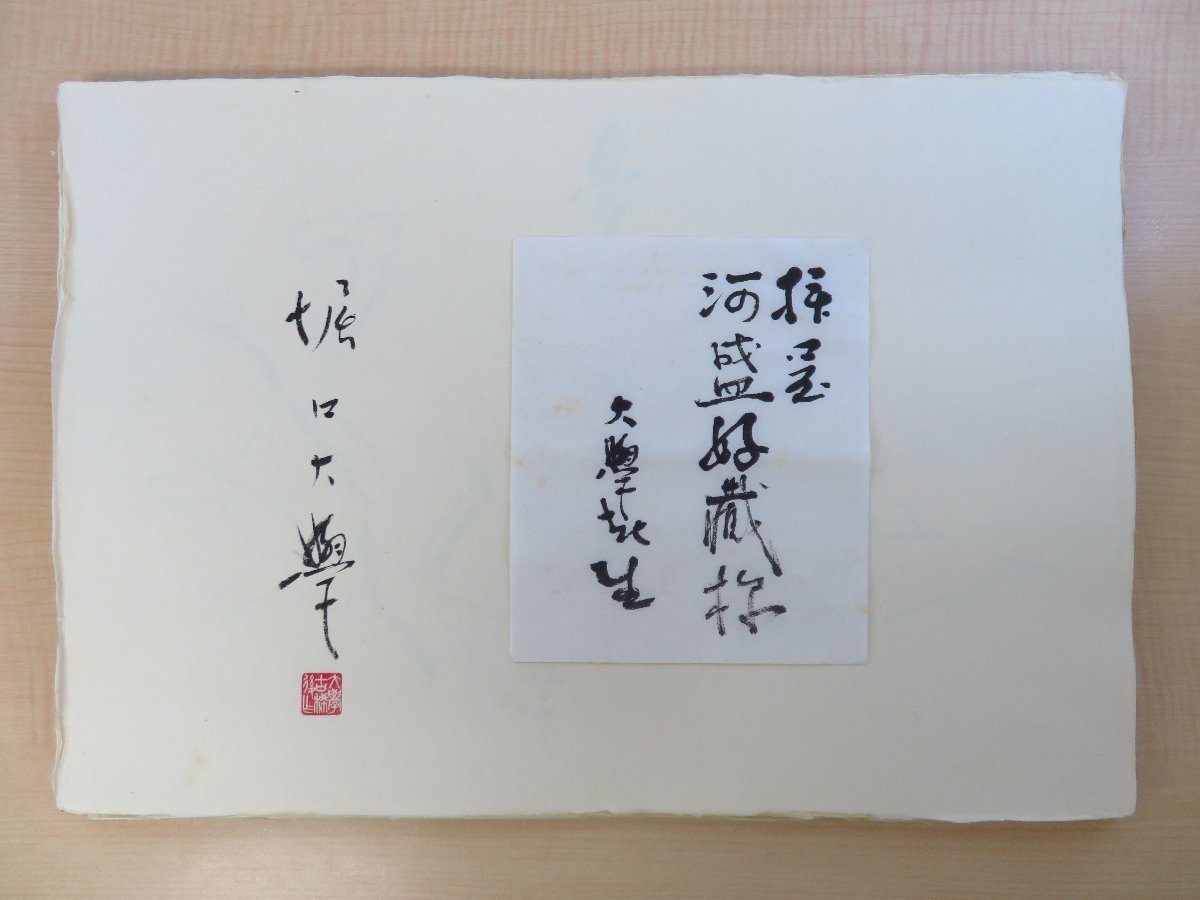 拝呈
河盛好藏様
大學老生
堀口大學